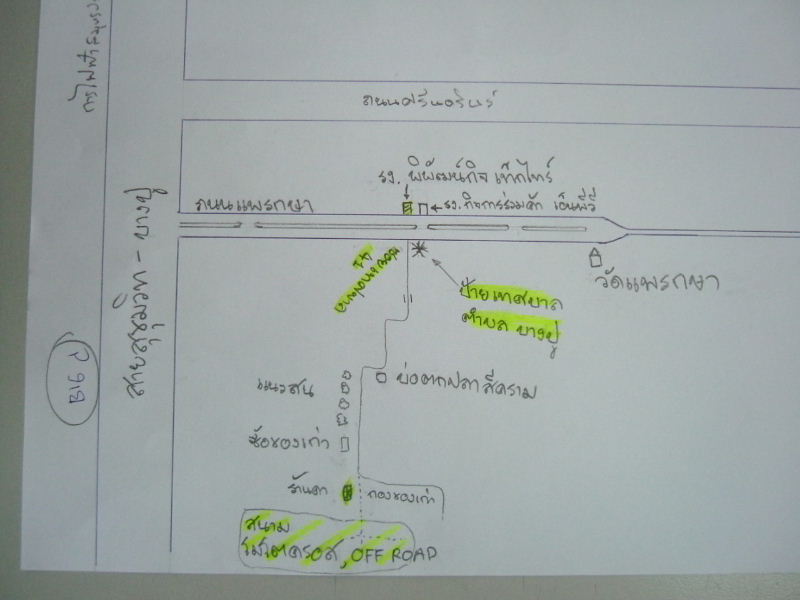 การไฟฟ้าสมุทร
ถนนศรีนครินทร์
รง. พิพัฒน์กิจ เท็กไทร์
ถนนแพรกษา
รง. กิจการร่วมค้า เอ็นพีวี
สายสุขุมวิท - บางปู
ป้ายเทศบาล
ตำบล บางปู
วัดแพรกษา
BIG P
แนวสน
บ่อตกปลา สีคราม
ซื้อของเก่า
ร้านตา
กองของเก่า
สนาม
โมโตครอส, OFF ROAD